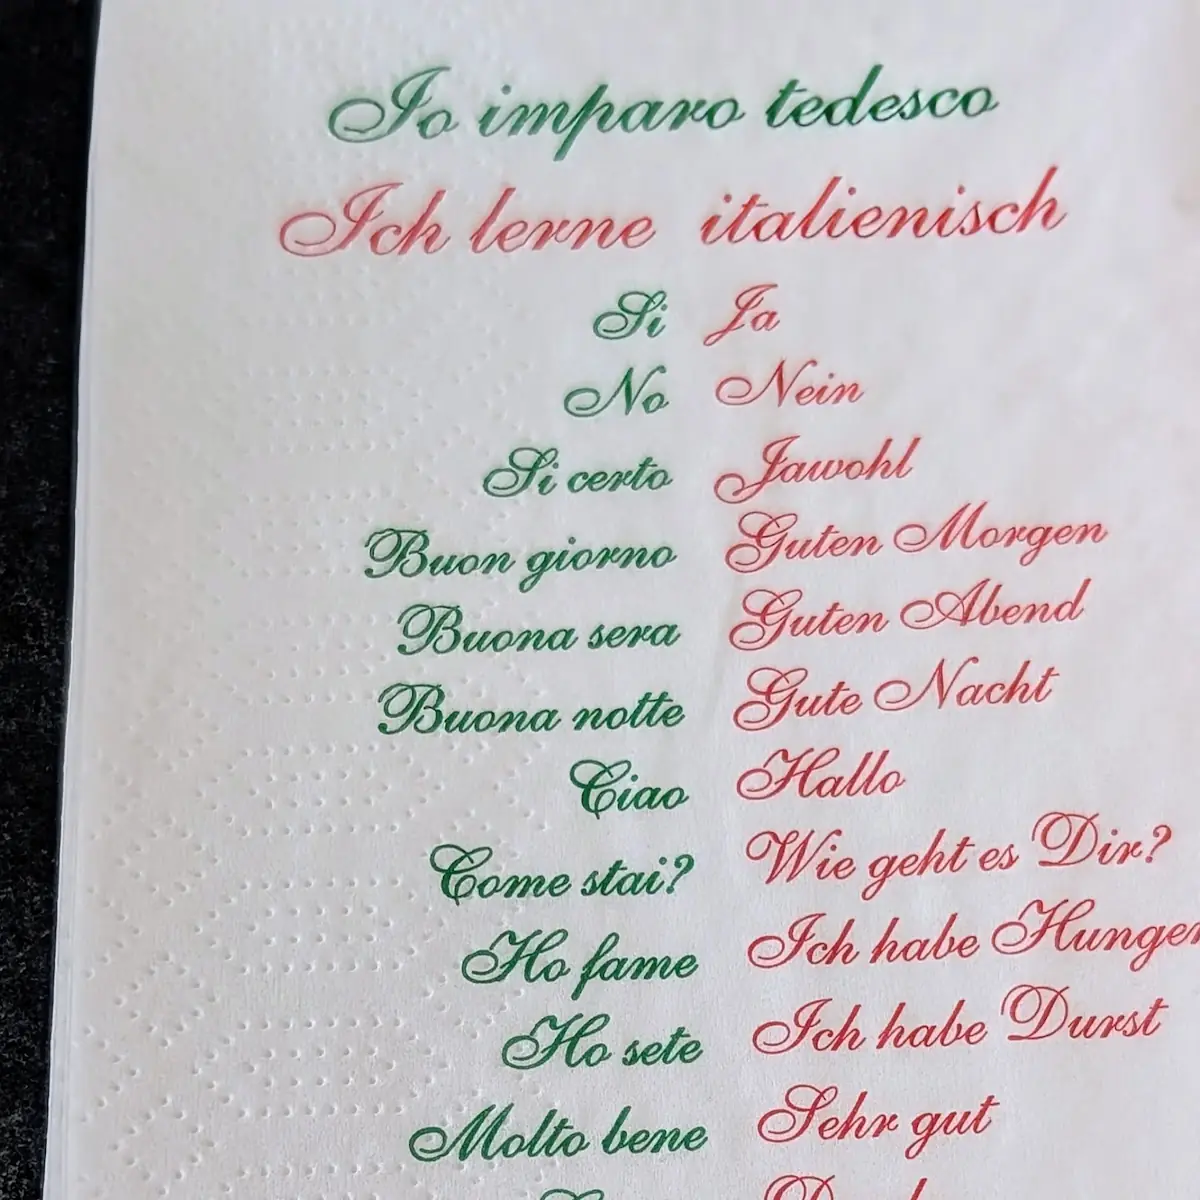 Io imparo tedesco
Ich lerne italienisch
Si Ja
No Nein
Si certo Jawohl
Buon giorno Guten Morgen
Buona sera Guten Abend
Buona notte Gute Nacht
Ciao Hallo
Come stai? Wie geht es Dir?
Ho fame Ich habe Hunger
Ho sete Ich habe Durst
Molto bene Sehr gut